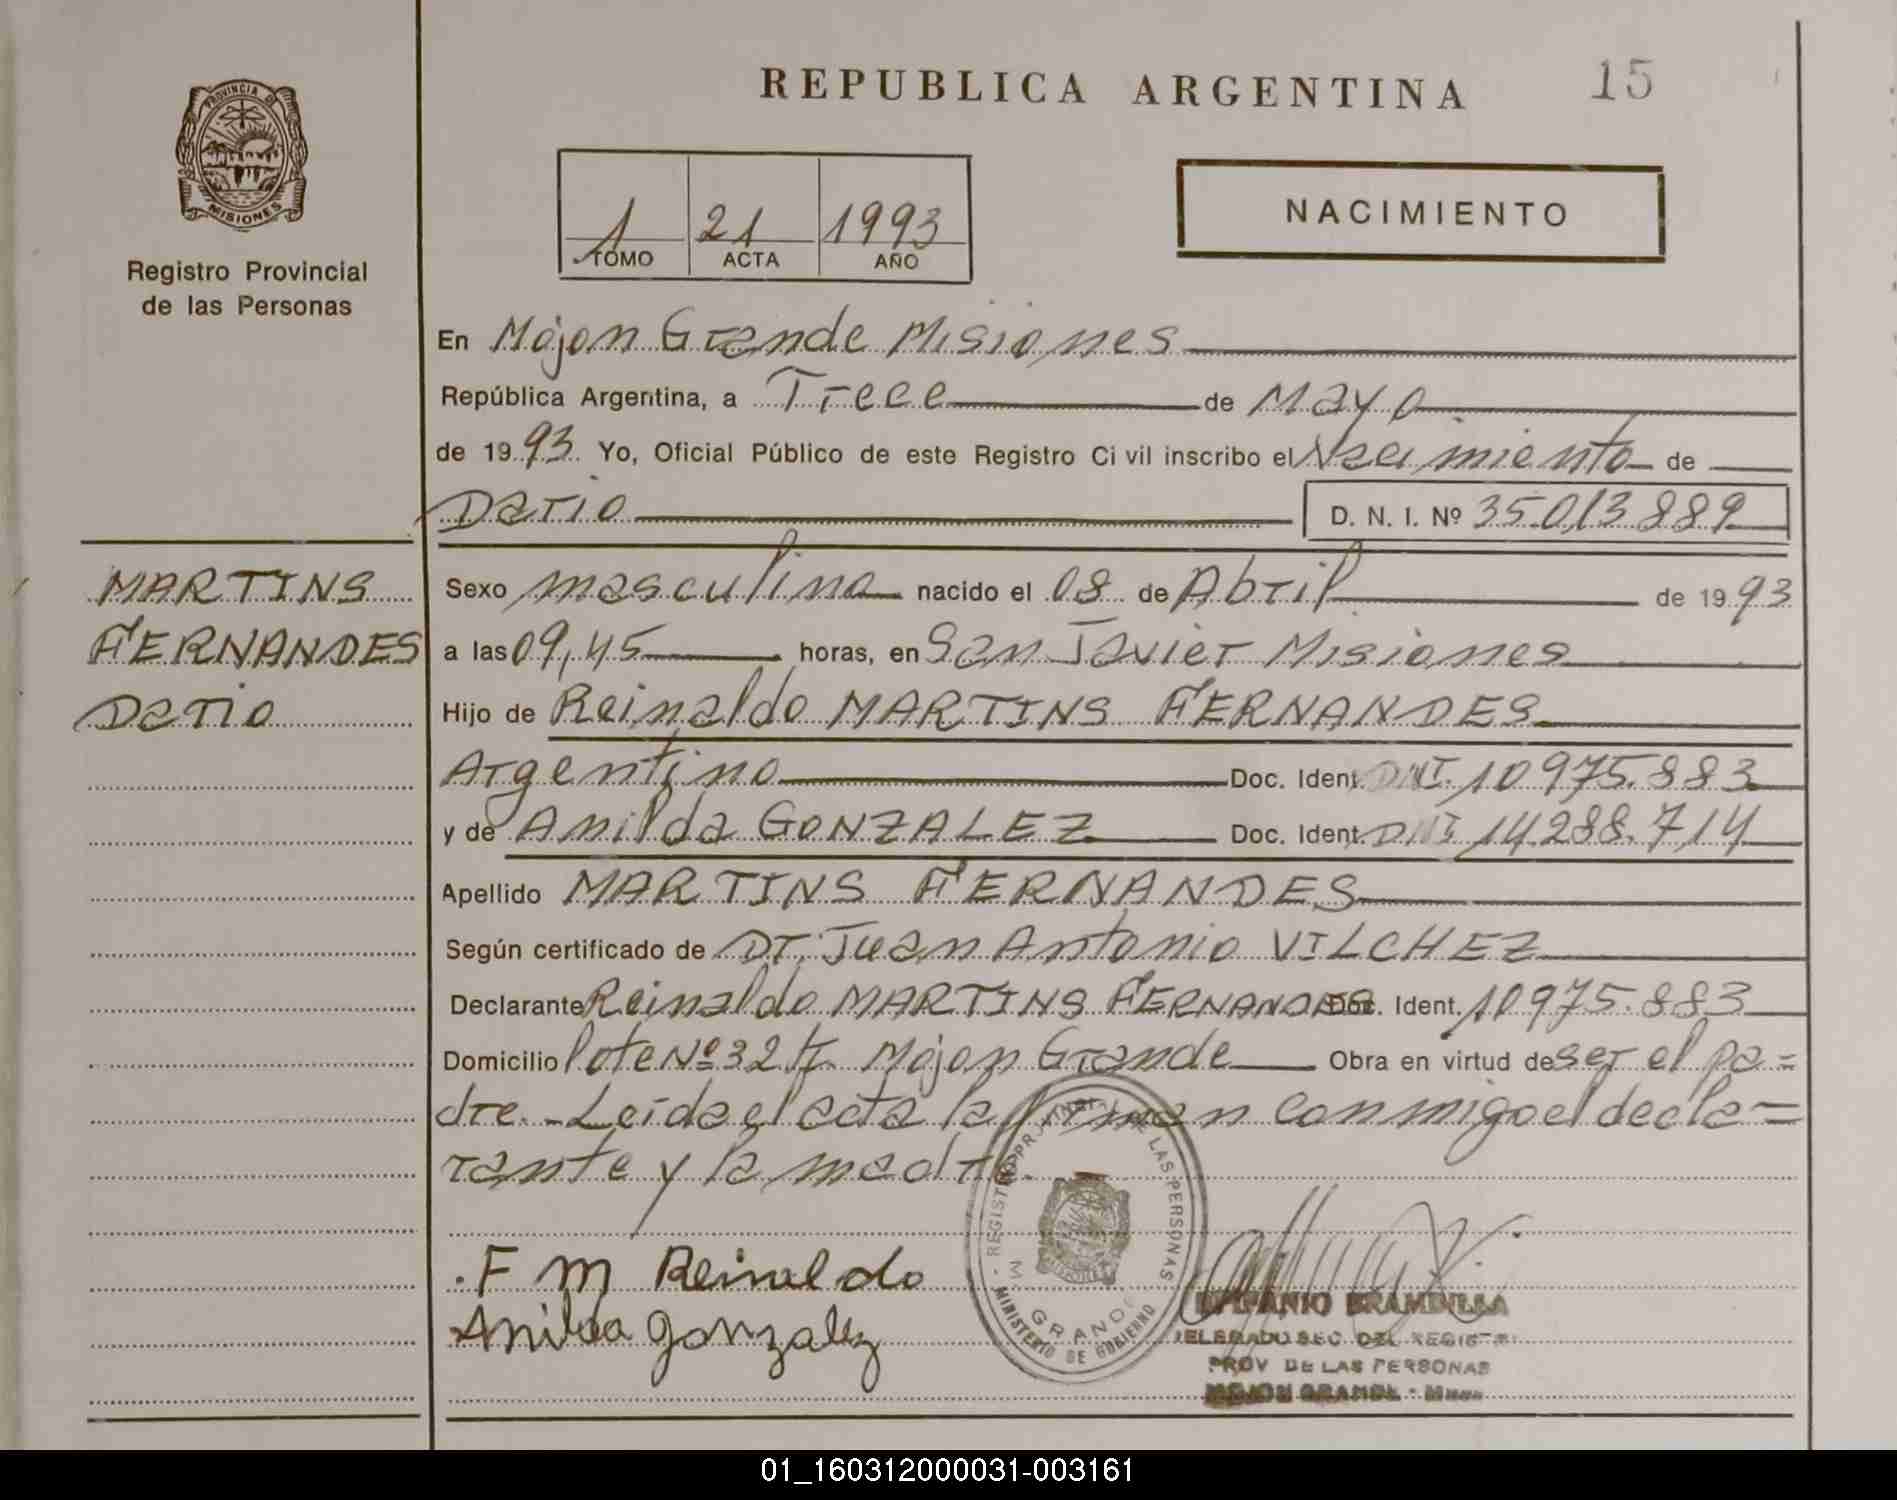 REPUBLICA ARGENTINA
15
PROVINCIA DE
MISIONES
Registro Provincial
de las Personas
1 21 1993
TOMO ACTA AÑO
NACIMIENTO
En Mojon Grande Misiones
República Argentina, a Trece de Mayo
de 1993 Yo, Oficial Público de este Registro Civil inscribo el Nacimiento de
Dario D. N. I. Nº 35.013889
MARTINS
FERNANDES
Dario
Sexo masculino nacido el 08 de Abril de 1993
a las 09,45 horas, en San Javier Misiones
Hijo de Reinaldo MARTINS FERNANDES
Argentino Doc. Ident. DNI. 10975.883
y de Anilda GONZALEZ Doc. Ident. DNI 14.288.714
Apellido MARTINS FERNANDES
Según certificado de Dr. Juan Antonio VILCHEZ
Declarante Reinaldo MARTINS FERNANDES Doc. Ident. 10975.883
Domicilio lote Nº 32 Mojon Grande Obra en virtud de ser el pa=
dre.- Leida el acta la firman conmigo el decla=
rante y la madre.
F M Reinaldo
Anilda gonzalez
REGISTRO PROVINCIAL DE LAS PERSONAS
M. GRANDE
MINISTERIO DE GOBIERNO
BRAMBILLA
DELEGADO SEC. DEL REGISTR
PROV DE LAS PERSONAS
MOJON GRANDE - Mnes
01_160312000031-003161